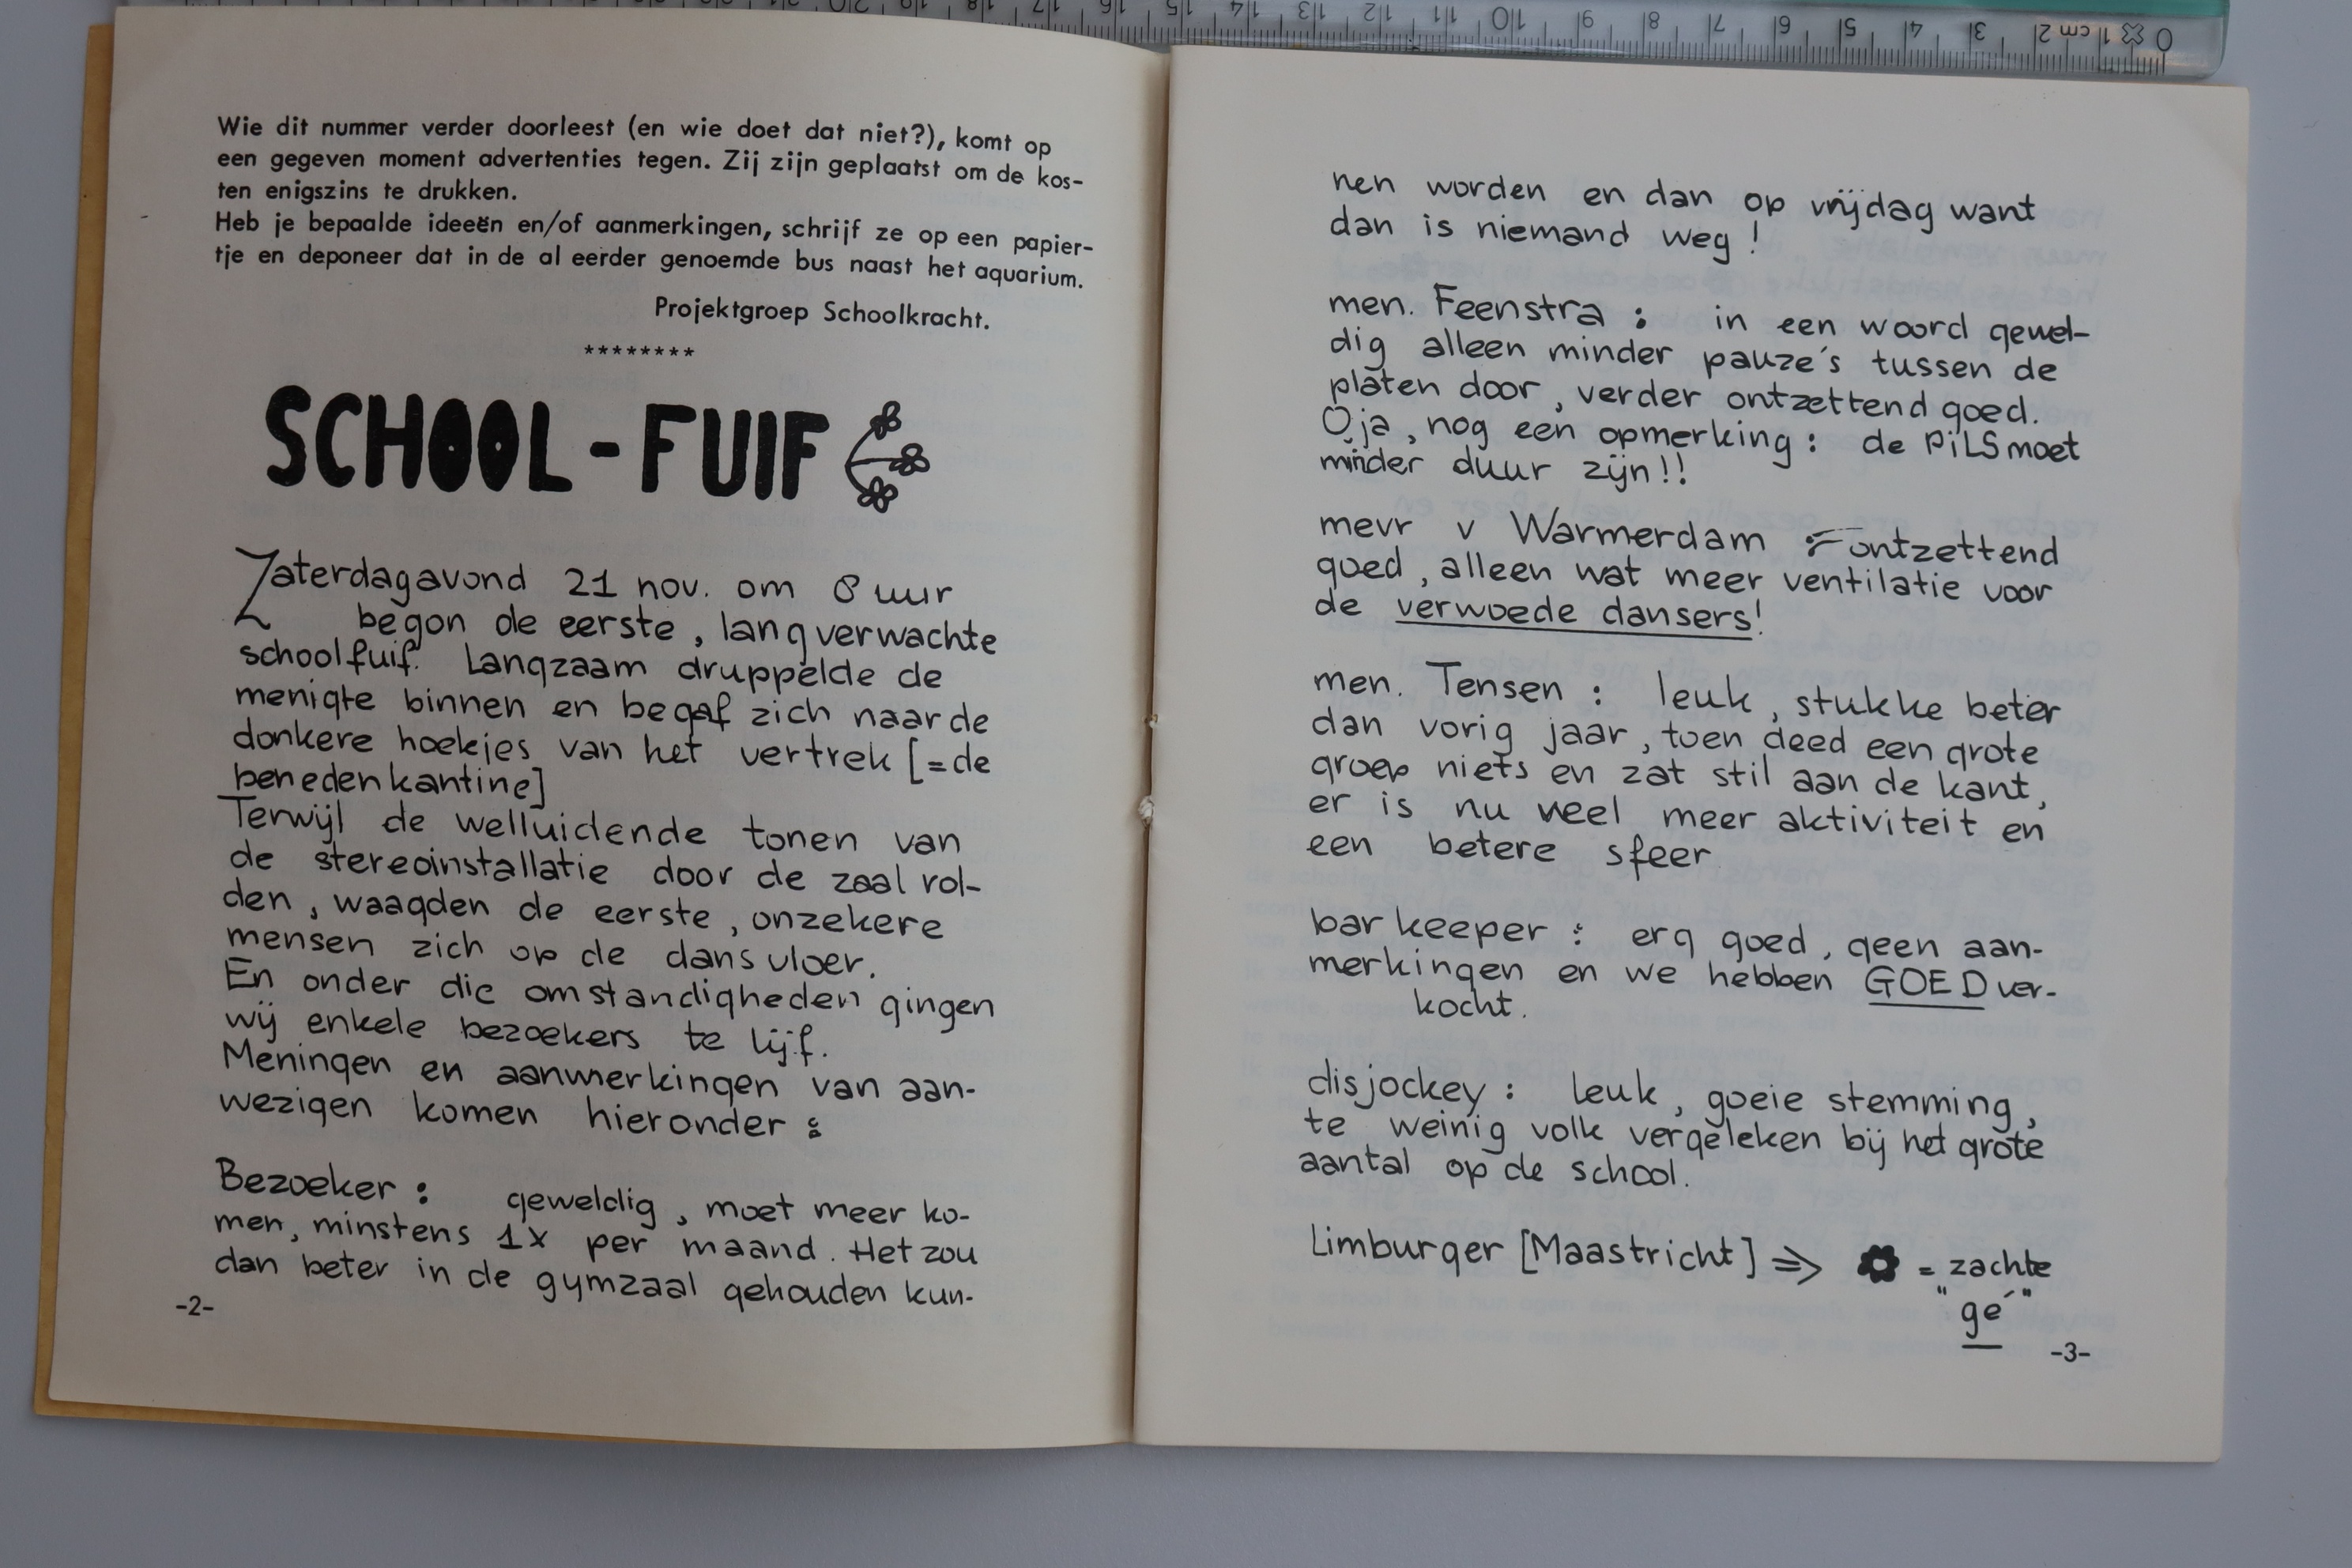 Wie dit nummer verder doorleest (en wie doet dat niet?), komt op
een gegeven moment advertenties tegen. Zij zijn geplaatst om de kos-
ten enigszins te drukken.
Heb je bepaalde ideeën en/of aanmerkingen, schrijf ze op een papier-
tje en deponeer dat in de al eerder genoemde bus naast het aquarium.
Projektgroep Schoolkracht.
********
SCHOOL-FUIF
Zaterdagavond 21 nov. om 8 uur
begon de eerste, lang verwachte
schoolfuif. Langzaam druppelde de
menigte binnen en begaf zich naar de
donkere hoekjes van het vertrek [=de
benedenkantine]
Terwijl de welluidende tonen van
de stereoinstallatie door de zaal rol-
den, waagden de eerste, onzekere
mensen zich op de dansvloer.
En onder die omstandigheden gingen
wij enkele bezoekers te lijf.
Meningen en aanmerkingen van aan-
wezigen komen hieronder :
Bezoeker : geweldig, moet meer ko-
men, minstens 1x per maand. Het zou
dan beter in de gymzaal gehouden kun-
-2-
nen worden en dan op vrijdag want
dan is niemand weg!
men. Feenstra : in een woord gewel-
dig alleen minder pauze's tussen de
platen door, verder ontzettend goed.
O ja, nog een opmerking : de PiLS moet
minder duur zijn!!
mevr v Warmerdam : ontzettend
goed, alleen wat meer ventilatie voor
de verwoede dansers!
men. Tensen : leuk, stukke beter
dan vorig jaar, toen deed een grote
groep niets en zat stil aan de kant,
er is nu veel meer aktiviteit en
een betere sfeer
barkeeper : erg goed, geen aan-
merkingen en we hebben GOED ver-
kocht.
disjockey : leuk, goeie stemming,
te weinig volk vergeleken bij het grote
aantal op de school.
Limburger [Maastricht] ⇒ = zachte
"gé"
-3-
0 1 cm 2 3 4 5 6 7 8 9 10 11 12 13 14 15 16 17 18 19 20